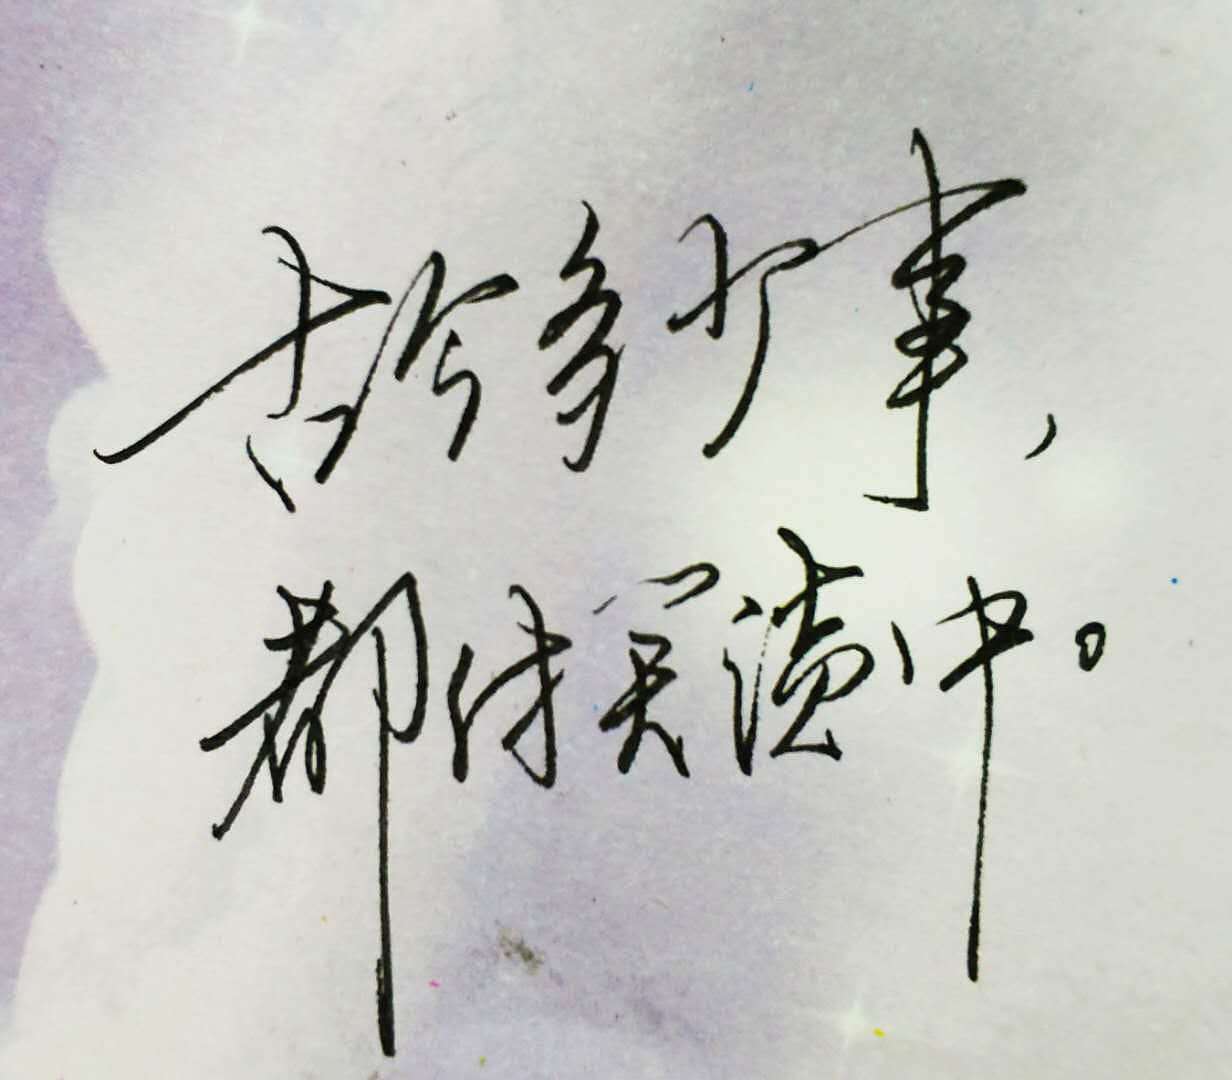 古今多少事，
都付笑谈中。